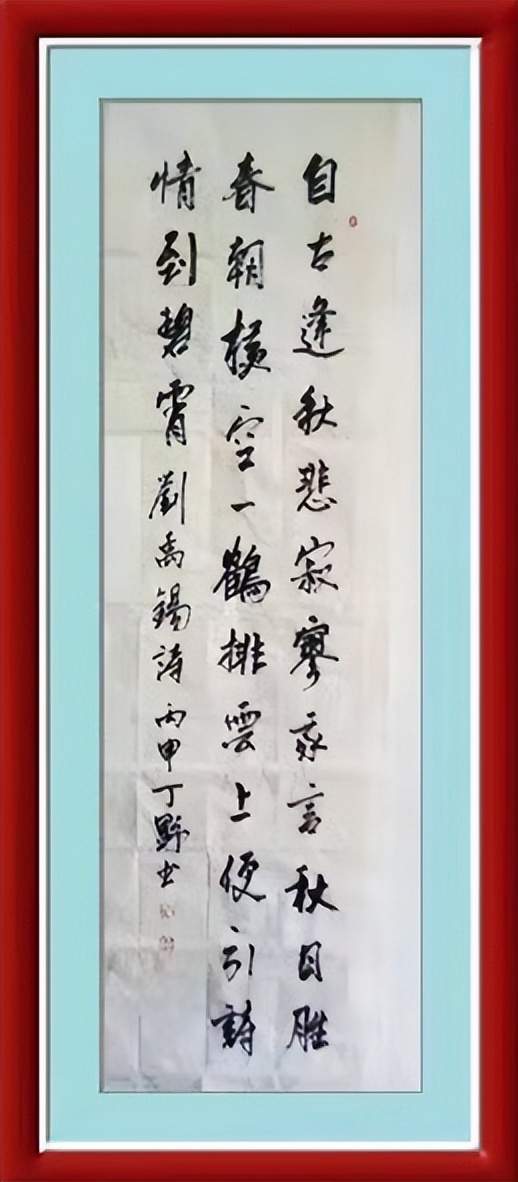 自古逢秋悲寂寥我言秋日胜
春朝横空一鹤排雲上便引詩
情到碧霄劉禹锡詩丙申丁野书